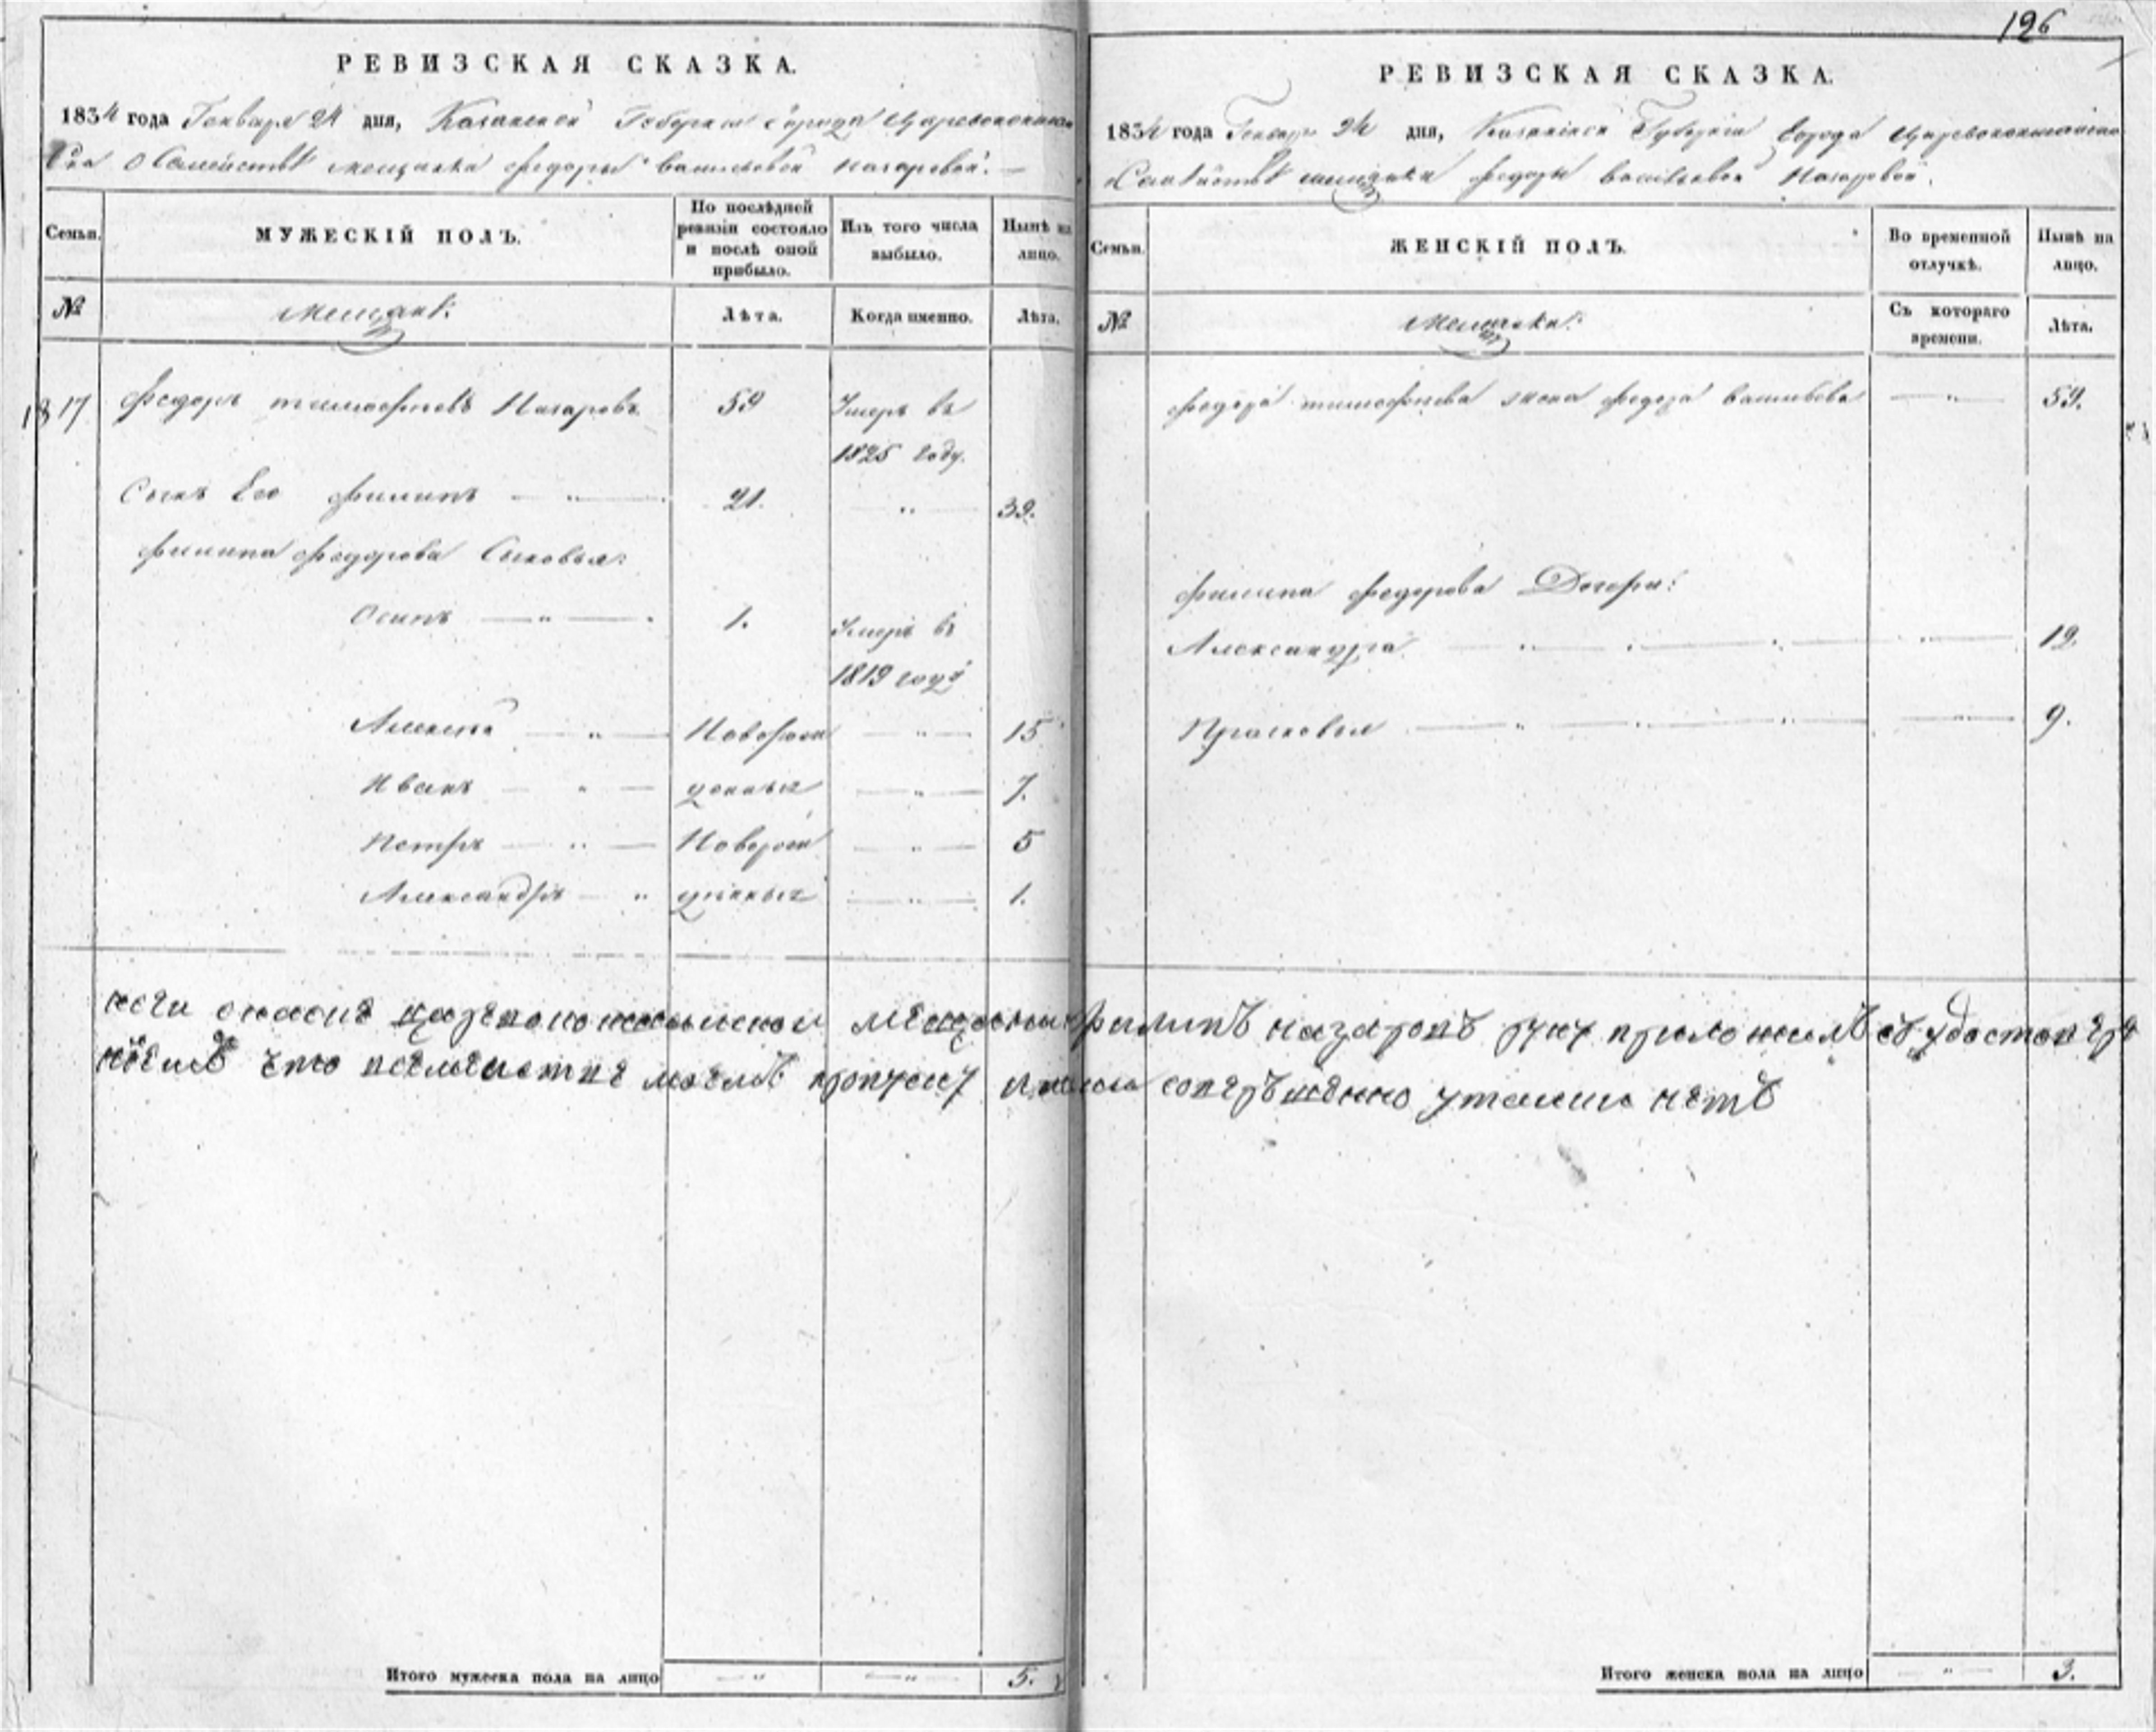 126
РЕВИЗСКАЯ СКАЗКА.
1834 года Генваря 24 дня, Казанской Губернии города Царевококшай
ска о Семействѣ мещанки федоры васильевой назаровой. —
Семьи. МУЖЕСКІЙ ПОЛЪ. По послѣдней ревизіи состояло и послѣ оной прибыло. Изъ того числа выбыло. Нынѣ на лицо.
№ Мещане: Лѣта. Когда именно. Лѣта.
18 17 федоръ тимофеевъ Назаровъ 59 Умеръ въ
1825 году.
Сынъ Его филипъ — " — 21. — " — 39.
филипа федорова Сыновья:
Осипъ — " — 1. Умеръ въ
1819 году
Алексей — " — Новорож — " — 15
Иванъ — " — денные — " — 7.
Петръ — " — Новорож — " — 5
Александръ — " денные — " — 1.
Итого мужеска пола на лицо — " — — " — 5.
РЕВИЗСКАЯ СКАЗКА.
1834 года Генваря 24 дня, Казанской Губерніи города Царевококшайска
о Семействѣ мещанки федоры васильевой Назаровой.
Семьи. ЖЕНСКІЙ ПОЛЪ. Во временной отлучкѣ. Нынѣ на лицо.
№ Мещанки: Съ котораго времени. Лѣта.
федора тимофеева жена федора васильева — " — 59.
филипа федорова Дочери:
Александра — " — " — " — " — 12.
Прасковья — " — " — " — " — 9.
Итого женска пола на лицо — " — 3.
мещанин филипъ назаровъ руку приложилъ
что моемъ пропуску утаики нетъ